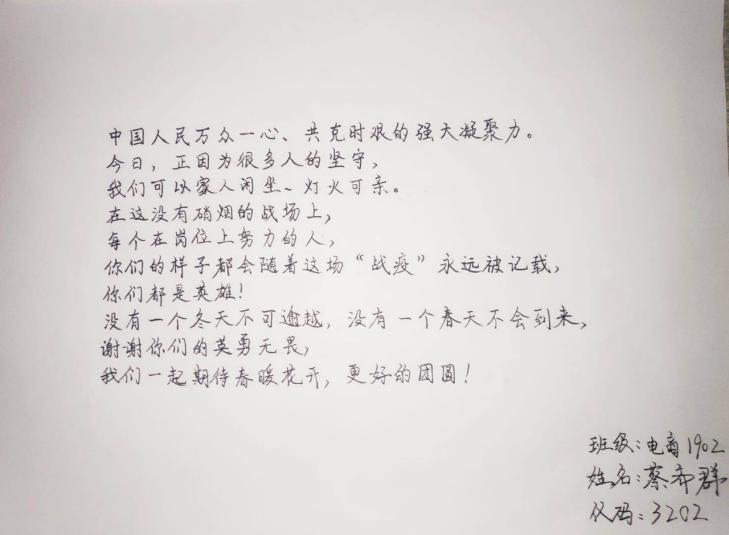 中国人民万众一心、共克时艰的强大凝聚力。
今日，正因为很多人的坚守，
我们可以家人闲坐、灯火可亲。
在这没有硝烟的战场上，
每个在岗位上努力的人，
你们的样子都会随着这场“战疫”永远被记载，
你们都是英雄！
没有一个冬天不可逾越，没有一个春天不会到来，
谢谢你们的英勇无畏，
我们一起期待春暖花开，更好的团圆！
班级：电商1902
姓名：蔡希群
代码：3202